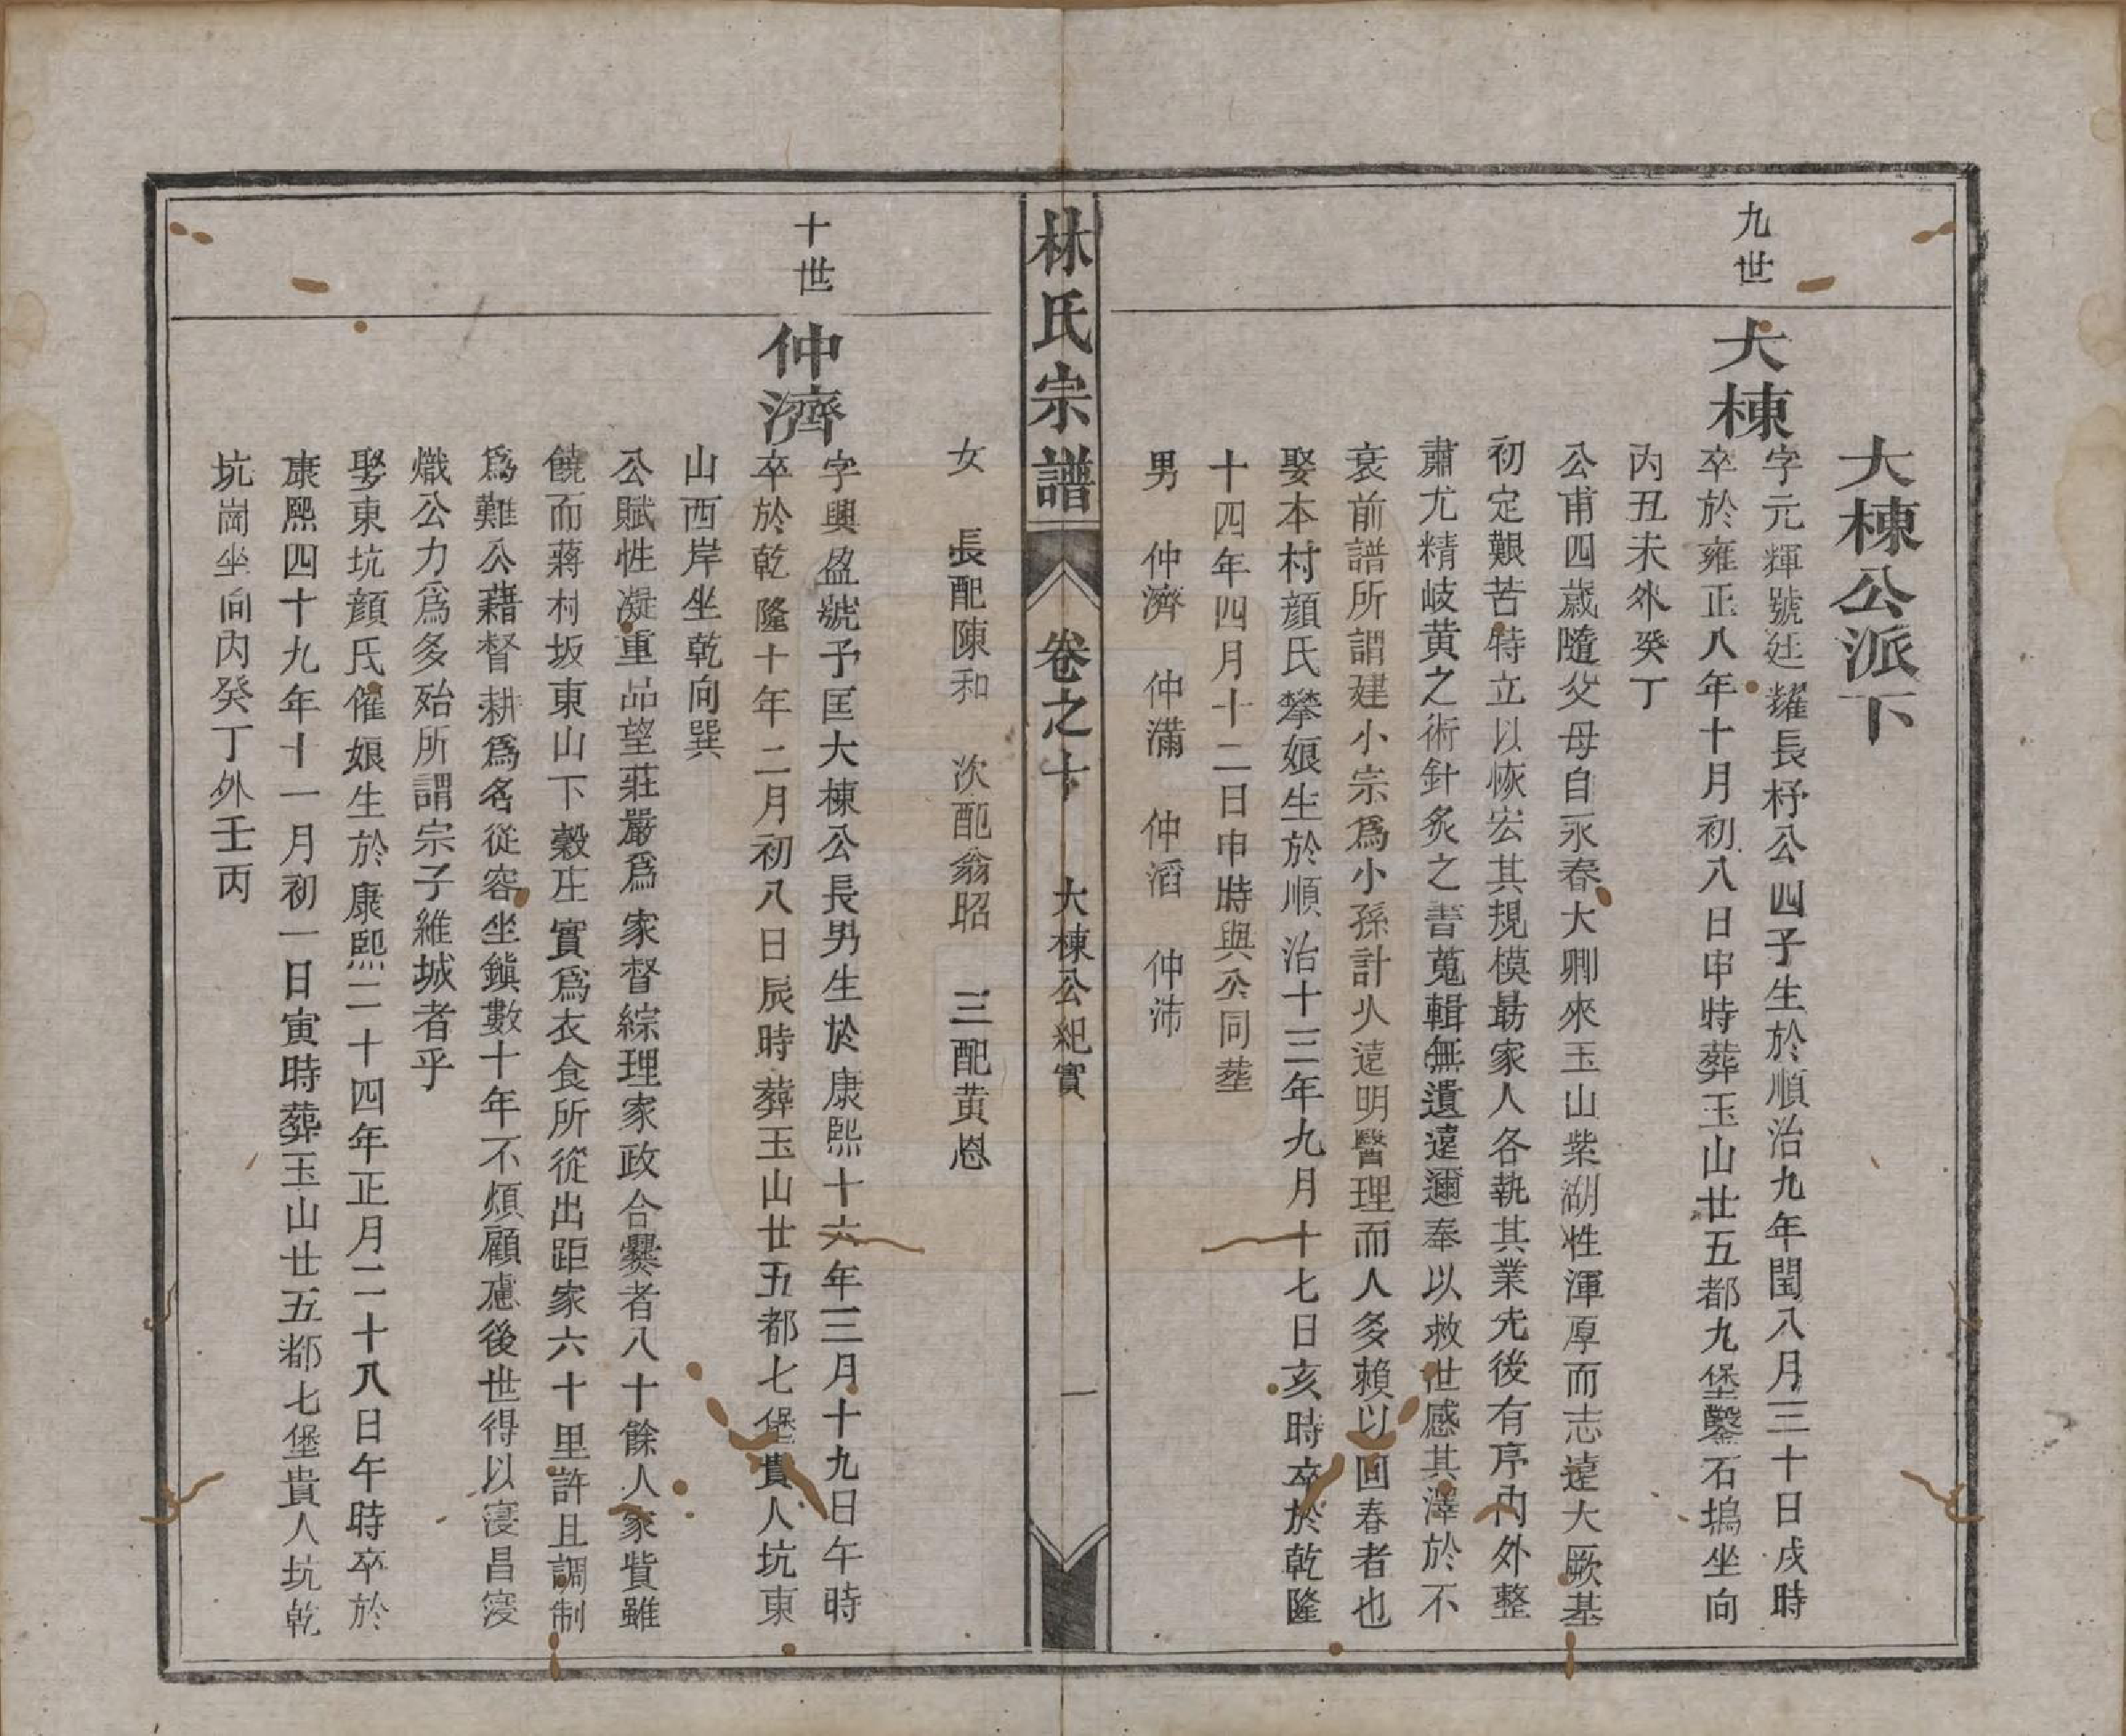 大棟公派下
九世
大棟
字元輝號廷耀長杼公四子生於順治九年閏八月三十日戌時
卒於雍正八年十月初八日申時葬玉山廿五都九堡鑿石塢坐向
內丑未外癸丁
公甫四歲隨父母自永春大卿來玉山紫湖性渾厚而志遠大厥基
初定艱苦特立以恢宏其規模朂家人各執其業先後有序內外整
肅尤精岐黃之術針炙之書蒐輯無遺遠邇奉以救世感其澤於不
衰前譜所謂建小宗爲小孫計乆遠明醫理而人多賴以回春者也
娶本村顏氏攀娘生於順治十三年九月十七日亥時卒於乾隆
十四年四月十二日申時與公同塟
男　仲濟　仲滿　仲滔　仲沛
林氏宗譜　卷之十　大棟公紀實　一
女　長配陳和　次配翁昭　三配黃恩
十世
仲濟
字興盈號予匡大棟公長男生於康熙十六年三月十九日午時
卒於乾隆十年二月初八日辰時葬玉山廿五都七堡貴人坑東
山西岸坐乾向巽
公賦性凝重品望莊嚴爲家督綜理家政合爨者八十餘人家貲雖
饒而蔣村坂東山下穀庄實爲衣食所從出距家六十里許且調制
爲難公藉督耕爲名從容坐鎮數十年不煩顧慮後世得以寖昌寖
熾公力爲多殆所謂宗子維城者乎
娶東坑顏氏催娘生於康熙二十四年正月二十八日午時卒於
康熙四十九年十一月初一日寅時葬玉山廿五都七堡貴人坑乾
坑崗坐向內癸丁外壬丙